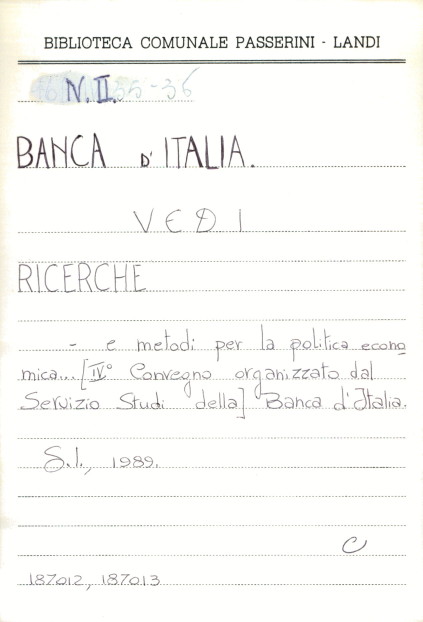 BIBLIOTECA COMUNALE PASSERINI - LANDI
N.II. 35-36
BANCA D'ITALIA.
VEDI
RICERCHE
- e metodi per la politica econo
mica...[IV° Convegno organizzato dal
Servizio Studi della] Banca d'Italia.
S.l., 1989.
C
187012, 187013